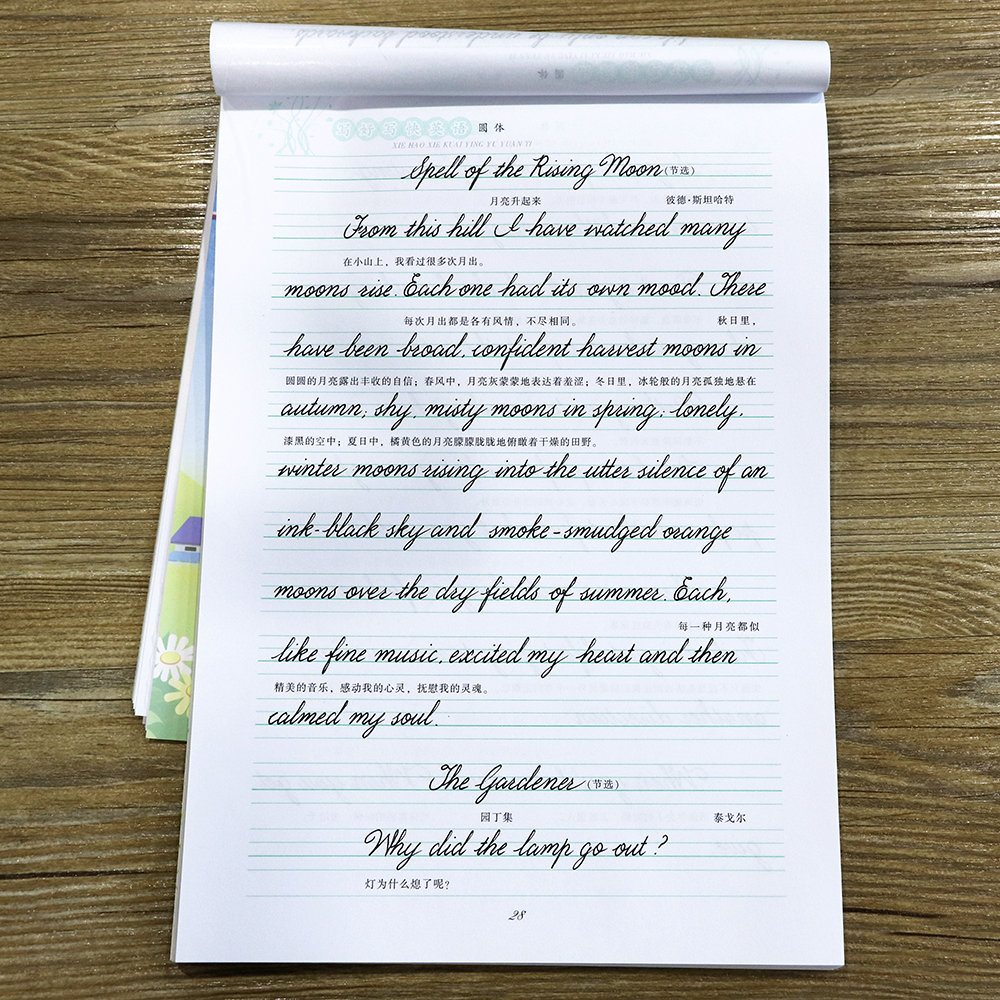 写好写快英语 圆体
XIE HAO XIE KUAI YING YU YUAN TI
Spell of the Rising Moon (节选)
月亮升起来 彼德·斯坦哈特
From this hill I have watched many
在小山上，我看过很多次月出。
moons rise. Each one had its own mood. There
每次月出都是各有风情，不尽相同。 秋日里，
have been broad, confident harvest moons in
圆圆的月亮露出丰收的自信；春风中，月亮灰蒙蒙地表达着羞涩；冬日里，冰轮般的月亮孤独地悬在
autumn; shy, misty moons in spring; lonely,
漆黑的空中；夏日中，橘黄色的月亮朦朦胧胧地俯瞰着干燥的田野。
winter moons rising into the utter silence of an
ink-black sky and smoke-smudged orange
moons over the dry fields of summer. Each,
每一种月亮都似
like fine music, excited my heart and then
精美的音乐，感动我的心灵，抚慰我的灵魂。
calmed my soul.
The Gardener (节选)
园丁集 泰戈尔
Why did the lamp go out?
灯为什么熄了呢?
28